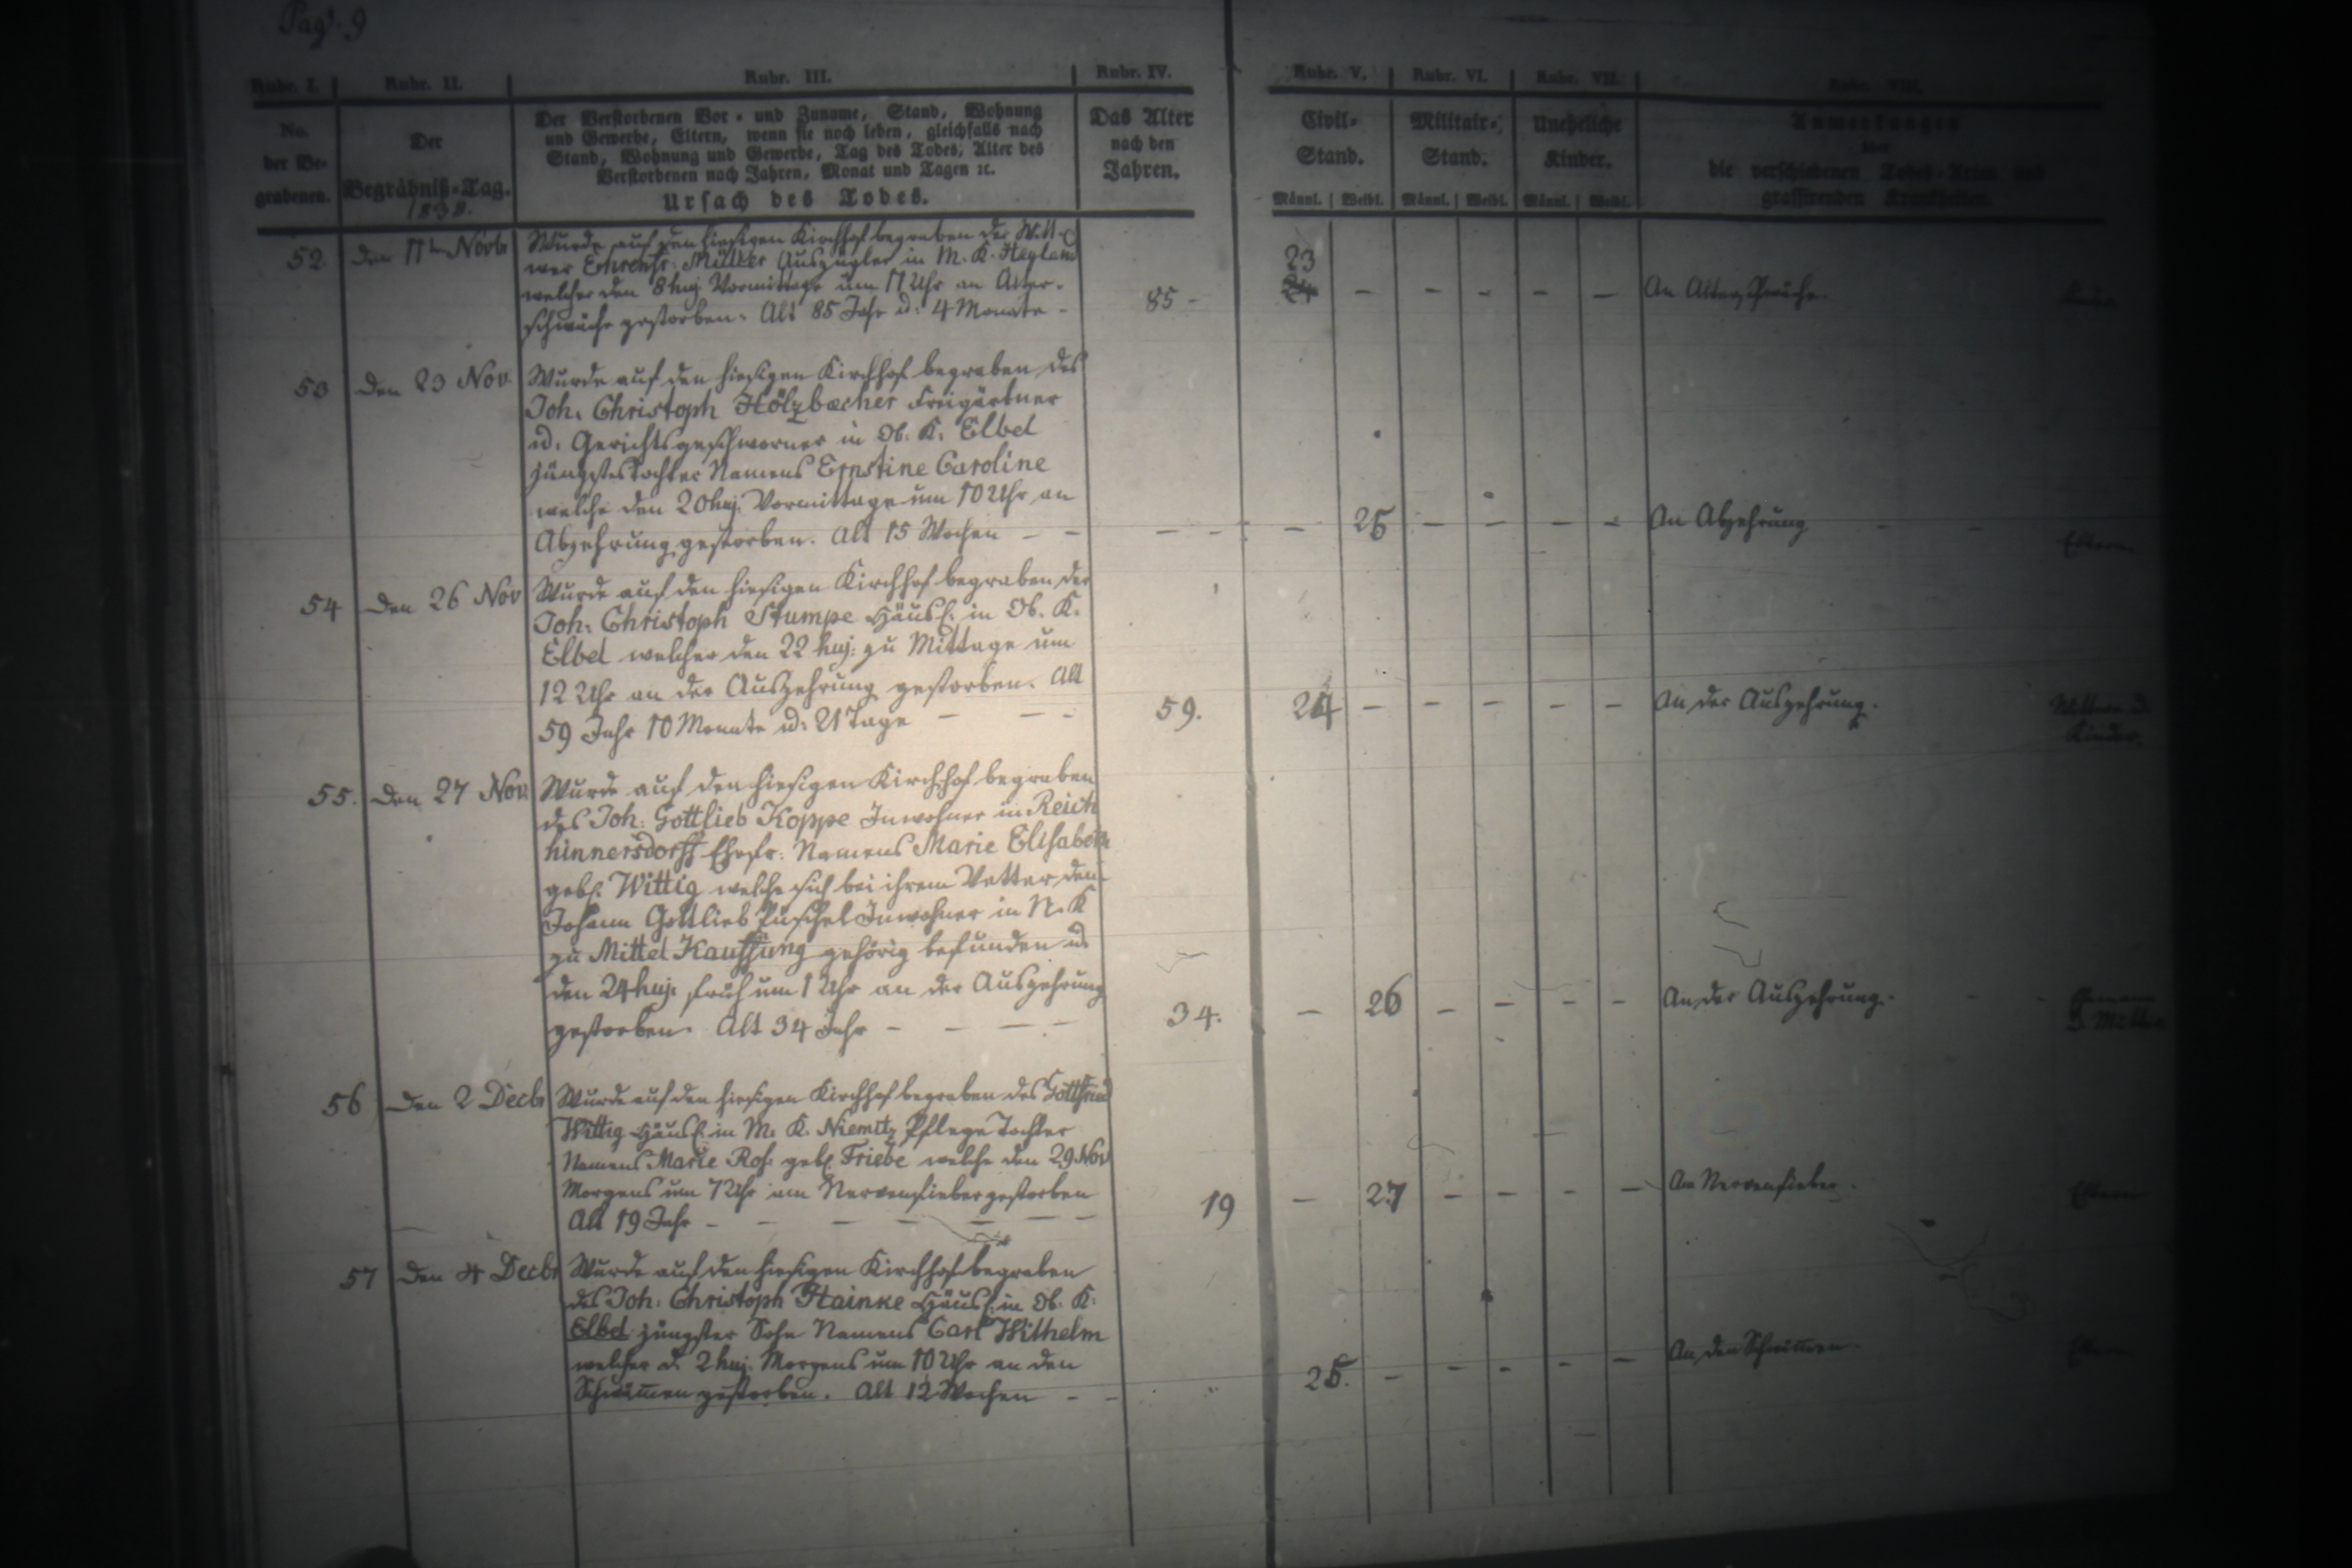 Pag. 9
Rubr. I. Rubr. II. Rubr. III. Rubr. IV. Rubr. V. Rubr. VI. Rubr. VII. Rubr. VIII.
No. der Be-grabenen.
Der Begräbniß-Tag.
1838.
Der Verstorbenen Vor- und Zuname, Stand, Wohnung
und Gewerbe, Eltern, wenn sie noch leben, gleichfalls nach
Stand, Wohnung und Gewerbe, Tag des Todes, Alter des
Verstorbenen nach Jahren, Monat und Tagen ꝛc.
Ursach des Todes.
Das Alter
nach den
Jahren.
Civil-
Stand.
Männl. Weibl.
Militair-
Stand.
Männl. Weibl.
Uneheliche
Kinder.
Männl. Weibl.
Anmerkungen
über
die verschiedenen Todes-Arten und
grassirenden Krankheiten.
52 den 11t Novbr Wurde auf den hiesigen Kirchhof begraben der Witt-
wer Ehrenfr. Müller Auszügler in M. K.
welcher den 8 huj Vormittags um 11 Uhr an Alter-
schwäche gestorben. Alt 85 Jahr u: 4 Monate - 85 - 23 - - - - - An Altersschwäche.
53 den 23 Nov. Wurde auf den hiesigen Kirchhof begraben des
Joh. Christoph Hölzbecher Freigärtner
u: Gerichtsgeschworner in Ob. K. Elbel
jüngstes Tochter Namens Ernstine Caroline
welche den 20 huj. Vormittags um 10 Uhr an
Abzehrung gestorben. Alt 15 Wochen - - - - - 25 - - - - An Abzehrung - - Eltern
54 den 26 Nov Wurde auf den hiesigen Kirchhof begraben der
Joh: Christoph Stumpe Häusl. in Ob. K.
Elbel welcher den 22 huj: zu Mittage um
12 Uhr an der Auszehrung gestorben. Alt
59 Jahr 10 Monate u: 21 Tage - - - 59. 24 - - - - - An der Auszehrung. Wittwe u.
Kinder.
55. den 27 Nov. Wurde auf den hiesigen Kirchhof begraben
des Joh: Gottlieb Koppe Inwohner in Reich
hinnersdorff Ehefr: Namens Marie Elisabeth
geb. Wittig welche sich bei ihrem Vetter den
Johann Gottlieb Püschel Inwohner in N. K
zu Mittel Kauffung gehörig befunden u.
den 24 huj. früh um 1 Uhr an der Auszehrung
gestorben. Alt 34 Jahr - - - - 34. - 26 - - - - An der Auszehrung. - -
56 den 2 Decbr Wurde auf den hiesigen Kirchhof begraben des Gottfried
Wittig Häusl. in M. K. Niemitz Pflege Tochter
Namens Marie Ros. geb. Friebe welche den 29 Nov
Morgens um 7 Uhr am Nervenfieber gestorben
Alt 19 Jahr - - - - - - - 19 - 27 - - - - Am Nervenfieber. Eltern
57 den 4 Decbr Wurde auf den hiesigen Kirchhof begraben
des Joh: Christoph Hainke Häusl. in Ob. K.
Elbel jüngster Sohn Namens Carl Wilhelm
welcher d. 2 huj. Morgens um 10 Uhr an den
Schwämen gestorben. Alt 12 Wochen - - 25. - - - - - An den Schwämen. Eltern